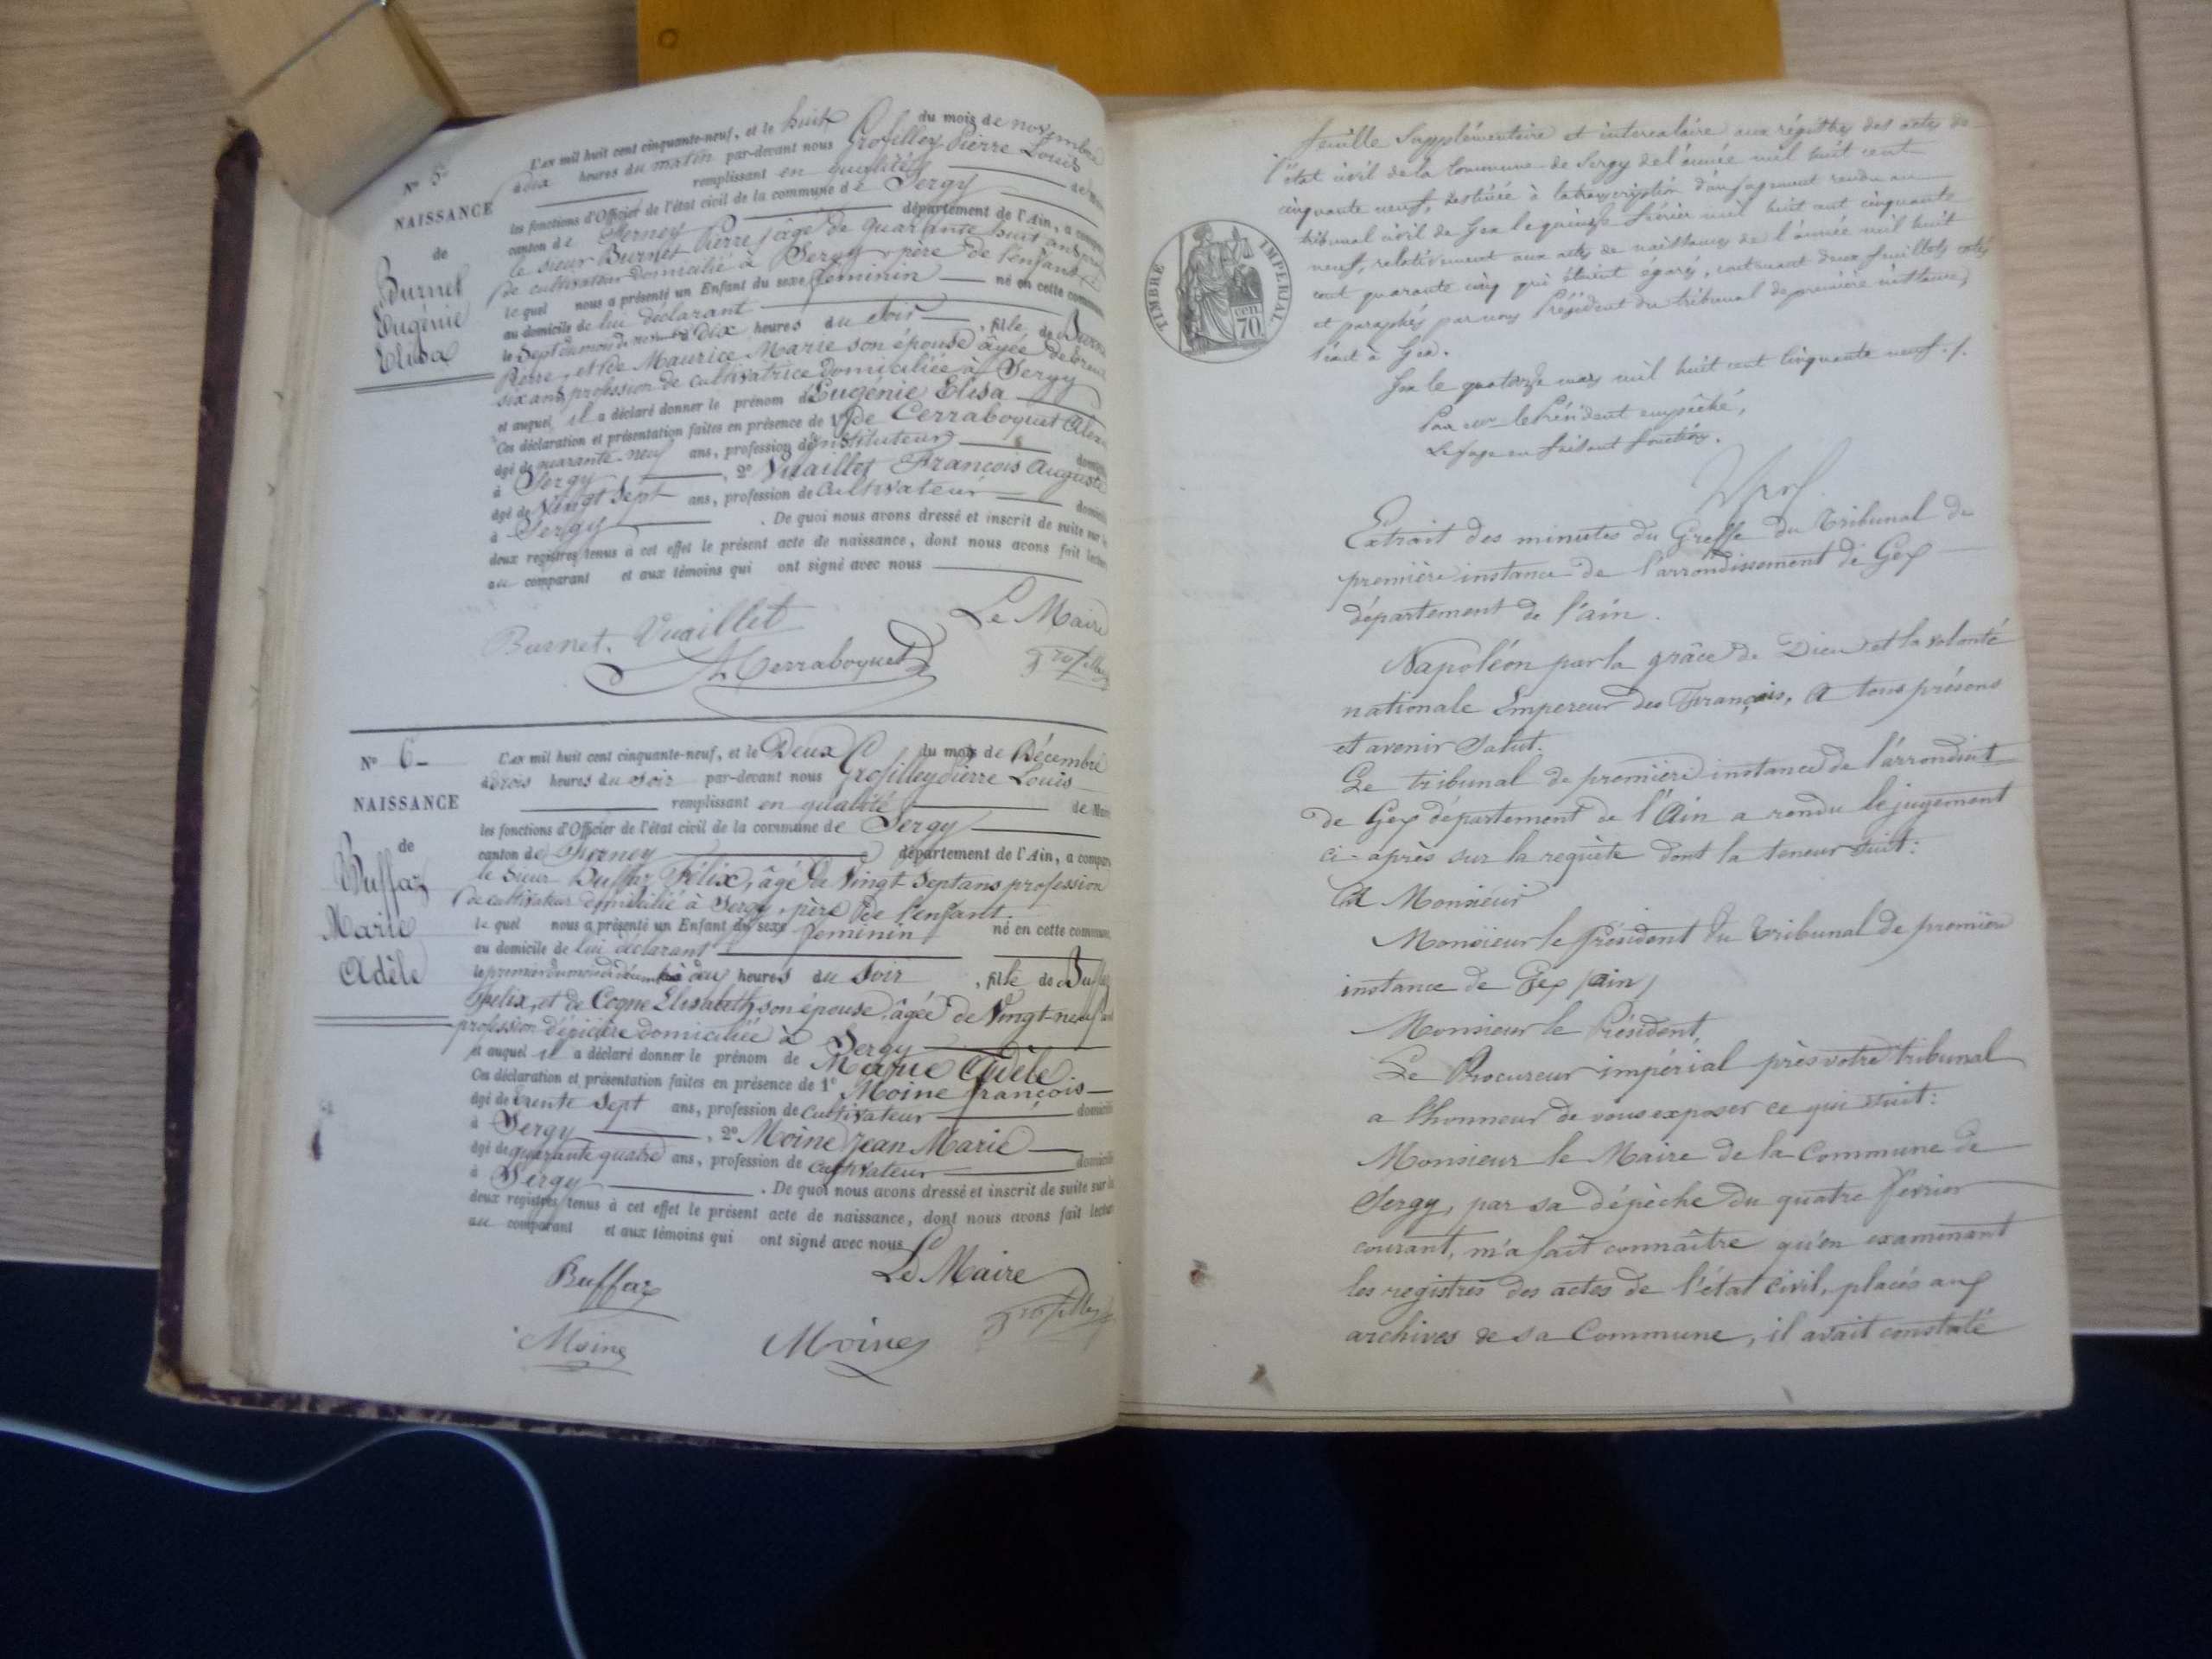 N° 5
NAISSANCE
de
Burnet
Eugénie
Elisa
L'an mil huit cent cinquante-neuf, et le huit du mois de novembre
à dix heures du matin par-devant nous Grosfilley Pierre Louis
remplissant en qualité de Maire
les fonctions d'Officier de l'état civil de la commune de Sergy
canton de Ferney département de l'Ain, a comparu
le sieur Burnet Pierre, âgé de quarante huit ans prof
de cultivateur domicilié à Sergy, père de l'enfant
le quel nous a présenté un Enfant du sexe feminin né en cette commune
au domicile de lui déclarant
le Sept du mois de nov à Dix heures du soir, fille de Burnet
Pierre, et de Maurice Marie son épouse âgée de trente
six ans profession de cultivatrice domiciliée à Sergy
et auquel il a déclaré donner le prénom d'Eugénie Elisa
Ces déclaration et présentation faites en présence de 1° de Cerraboquet Alex
âgé de quarante-neuf ans, profession d'instituteur domicilié
à Sergy, 2° Vuaillet François Auguste
âgé de Vingt Sept ans, profession de cultivateur domicilié
à Sergy. De quoi nous avons dressé et inscrit de suite sur les
deux registres tenus à cet effet le présent acte de naissance, dont nous avons fait lecture
au comparant et aux témoins qui ont signé avec nous
Le Maire
Burnet. Vuaillet
A Cerraboquet Grosfilley
N° 6
NAISSANCE
de
Buffaz
Marie
Adèle
L'an mil huit cent cinquante-neuf, et le Deux du mois de Décembre
à trois heures du soir par-devant nous Grosfilley Pierre Louis
remplissant en qualité de Maire
les fonctions d'Officier de l'état civil de la commune de Sergy
canton de Ferney département de l'Ain, a comparu
le Sieur Buffaz Félix, âgé de Vingt Sept ans profession
de cultivateur domicilié à Sergy, père de l'enfant.
le quel nous a présenté un Enfant du sexe feminin né en cette commune
au domicile de lui déclarant
le premier du mois de décembre à deux heures du soir, fille de Buffaz
Félix, et de Cogne Elisabeth, son épouse, âgée de Vingt-neuf ans
profession d'épicière domiciliée à Sergy
et auquel il a déclaré donner le prénom de Marie Adèle
Ces déclaration et présentation faites en présence de 1° Moine françois
âgé de trente sept ans, profession de cultivateur domicilié
à Sergy, 2° Moine Jean Marie
âgé de quarante quatre ans, profession de cultivateur domicilié
à Sergy. De quoi nous avons dressé et inscrit de suite sur les
deux registres tenus à cet effet le présent acte de naissance, dont nous avons fait lecture
au comparant et aux témoins qui ont signé avec nous
Le Maire
Buffaz Grosfilley
Moine Moine
feuille supplémentaire et intercalaire aux régistres des actes de
l'état civil de la Commune de Sergy de l'année mil huit cent
cinquante neuf, destinée à la transcription d'un jugement rendu au
tribunal civil de Gex le quinze février mil huit cent cinquante
neuf, relativement aux actes de naissances de l'année mil huit
cent quarante cinq qui étaient égarés, contenant deux feuillets cotés
et paraphés par nous Président du tribunal de première instance,
séant à Gex.
Gex le quatorze mars mil huit cent cinquante neuf./.
Pour mr le Président empêché,
Le Juge en faisant fonctions.
TIMBRE IMPERIAL
70 cen.
Extrait des minutes du Greffe du Tribunal de
première instance de l'arrondissement de Gex
département de l'ain.
Napoléon par la grâce de Dieu et la volonté
nationale Empereur des Français, A tous présens
et avenir Salut.
Le tribunal de première instance de l'arrondint
de Gex département de l'Ain a rendu le jugement
ci-après sur la requête dont la teneur suit:
A Monsieur
Monsieur le Président du Tribunal de première
instance de Gex (ain)
Monsieur le Président,
Le Procureur impérial près votre tribunal
a l'honneur de vous exposer ce qui suit:
Monsieur le Maire de la Commune de
Sergy, par sa dépèche du quatre février
courant, m'a fait connaître qu'en examinant
les registres des actes de l'état civil, placés aux
archives de sa Commune, il avait constaté